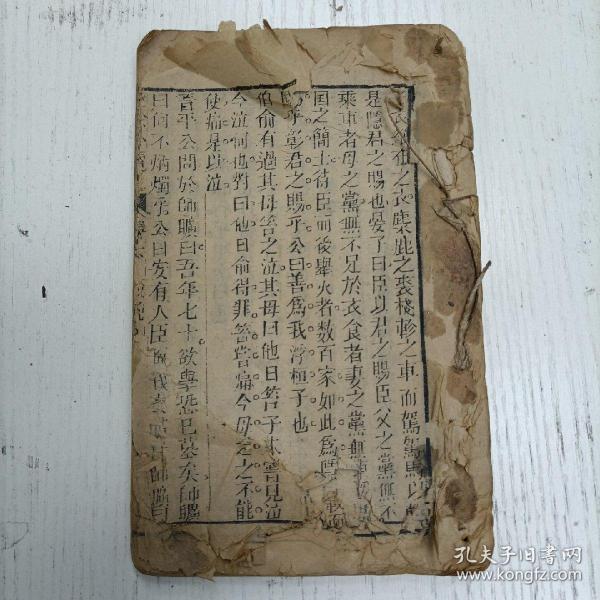 衣緇布之衣麋鹿之裘棧軫之車而駕駑馬以
是隱君之賜也晏子曰臣以君之賜臣父之黨無不
乘車者母之黨無不足於衣食者妻之黨無
國之簡士待臣而後舉火者數百家如此為隱君
賜乎彰君之賜乎公曰善為我浮桓子也
伯俞有過其母笞之泣其母曰他日笞子未嘗見泣
今泣何也對曰他日俞得罪笞嘗痛今母之力不能
使痛是以泣
晉平公問於師曠曰吾年七十欲學恐已暮矣師曠
曰何不炳燭乎公曰安有人臣而戲其君乎師曠曰
孔夫子旧书网
www.kongfz.com